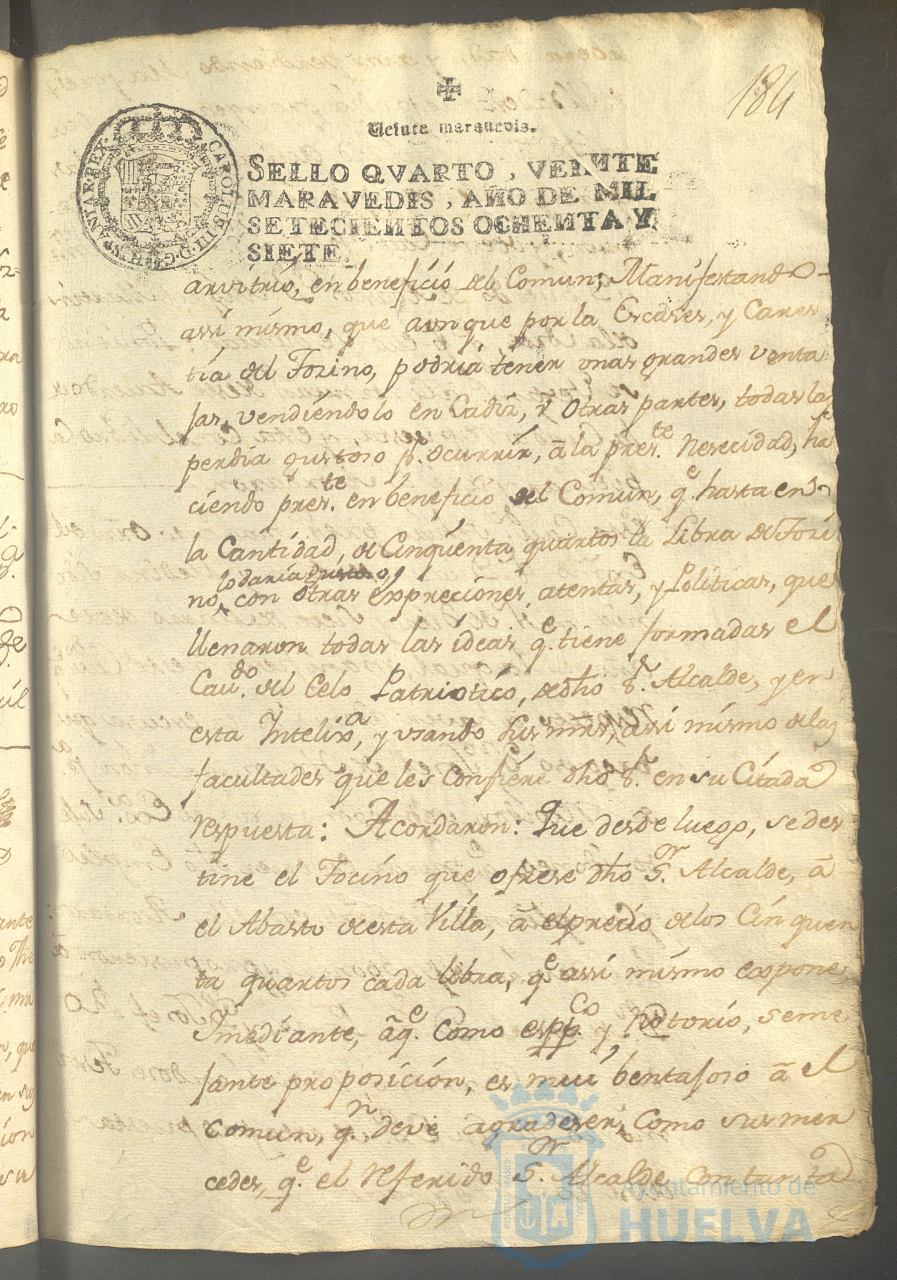 184
Veinte maravedis.
SELLO QVARTO, VEINTE
MARAVEDIS, AÑO DE MIL
SETECIENTOS OCHENTA Y
SIETE.
CAROLUS III D G HISPANIAR REX
arvitrio, en beneficio del Comun; Manifestando
assi mismo, que aunque por la Escases, y Cares
tia del Tozino, podria tener unas grandes venta
jas, vendiendolo en Cadiz, y Otras partes, todas las
perdia gustoso pr. ocurrir, â la preste. Nesecidad, ha
ciendo preste. en beneficio del Comun, qe. hasta en
la Cantidad, de Cinquenta quartos la Libra de Tozi
lo daria Gustoso,
no, con otras expreciones atentas, y Politicas, que
llenaron todas las ideas qe. tiene formadas el
Cavdo. del Celo Patriotico, de dho Sr. Alcalde, y en
esta Intelixa, y usando sus mrds, assi mismo de las
facultades que les confiere dho Sr. en su Citada
respuesta: Acordaron: Que desde luego, se des
tine el Tocino que ofrese dho Sr. Alcalde, â
el Abasto de esta Villa, â el precio de los Cinquen
ta quartos cada libra, qe. assi mismo expone,
mediante, âqe. Como es ppco. y Notorio, seme
jante proposicion, es mui bentajoso â el
comun, qn. deve agradeser, Como sus mer
cedes, qe. el referido Sr. Alcalde con tanta
Ayuntamiento de
HUELVA